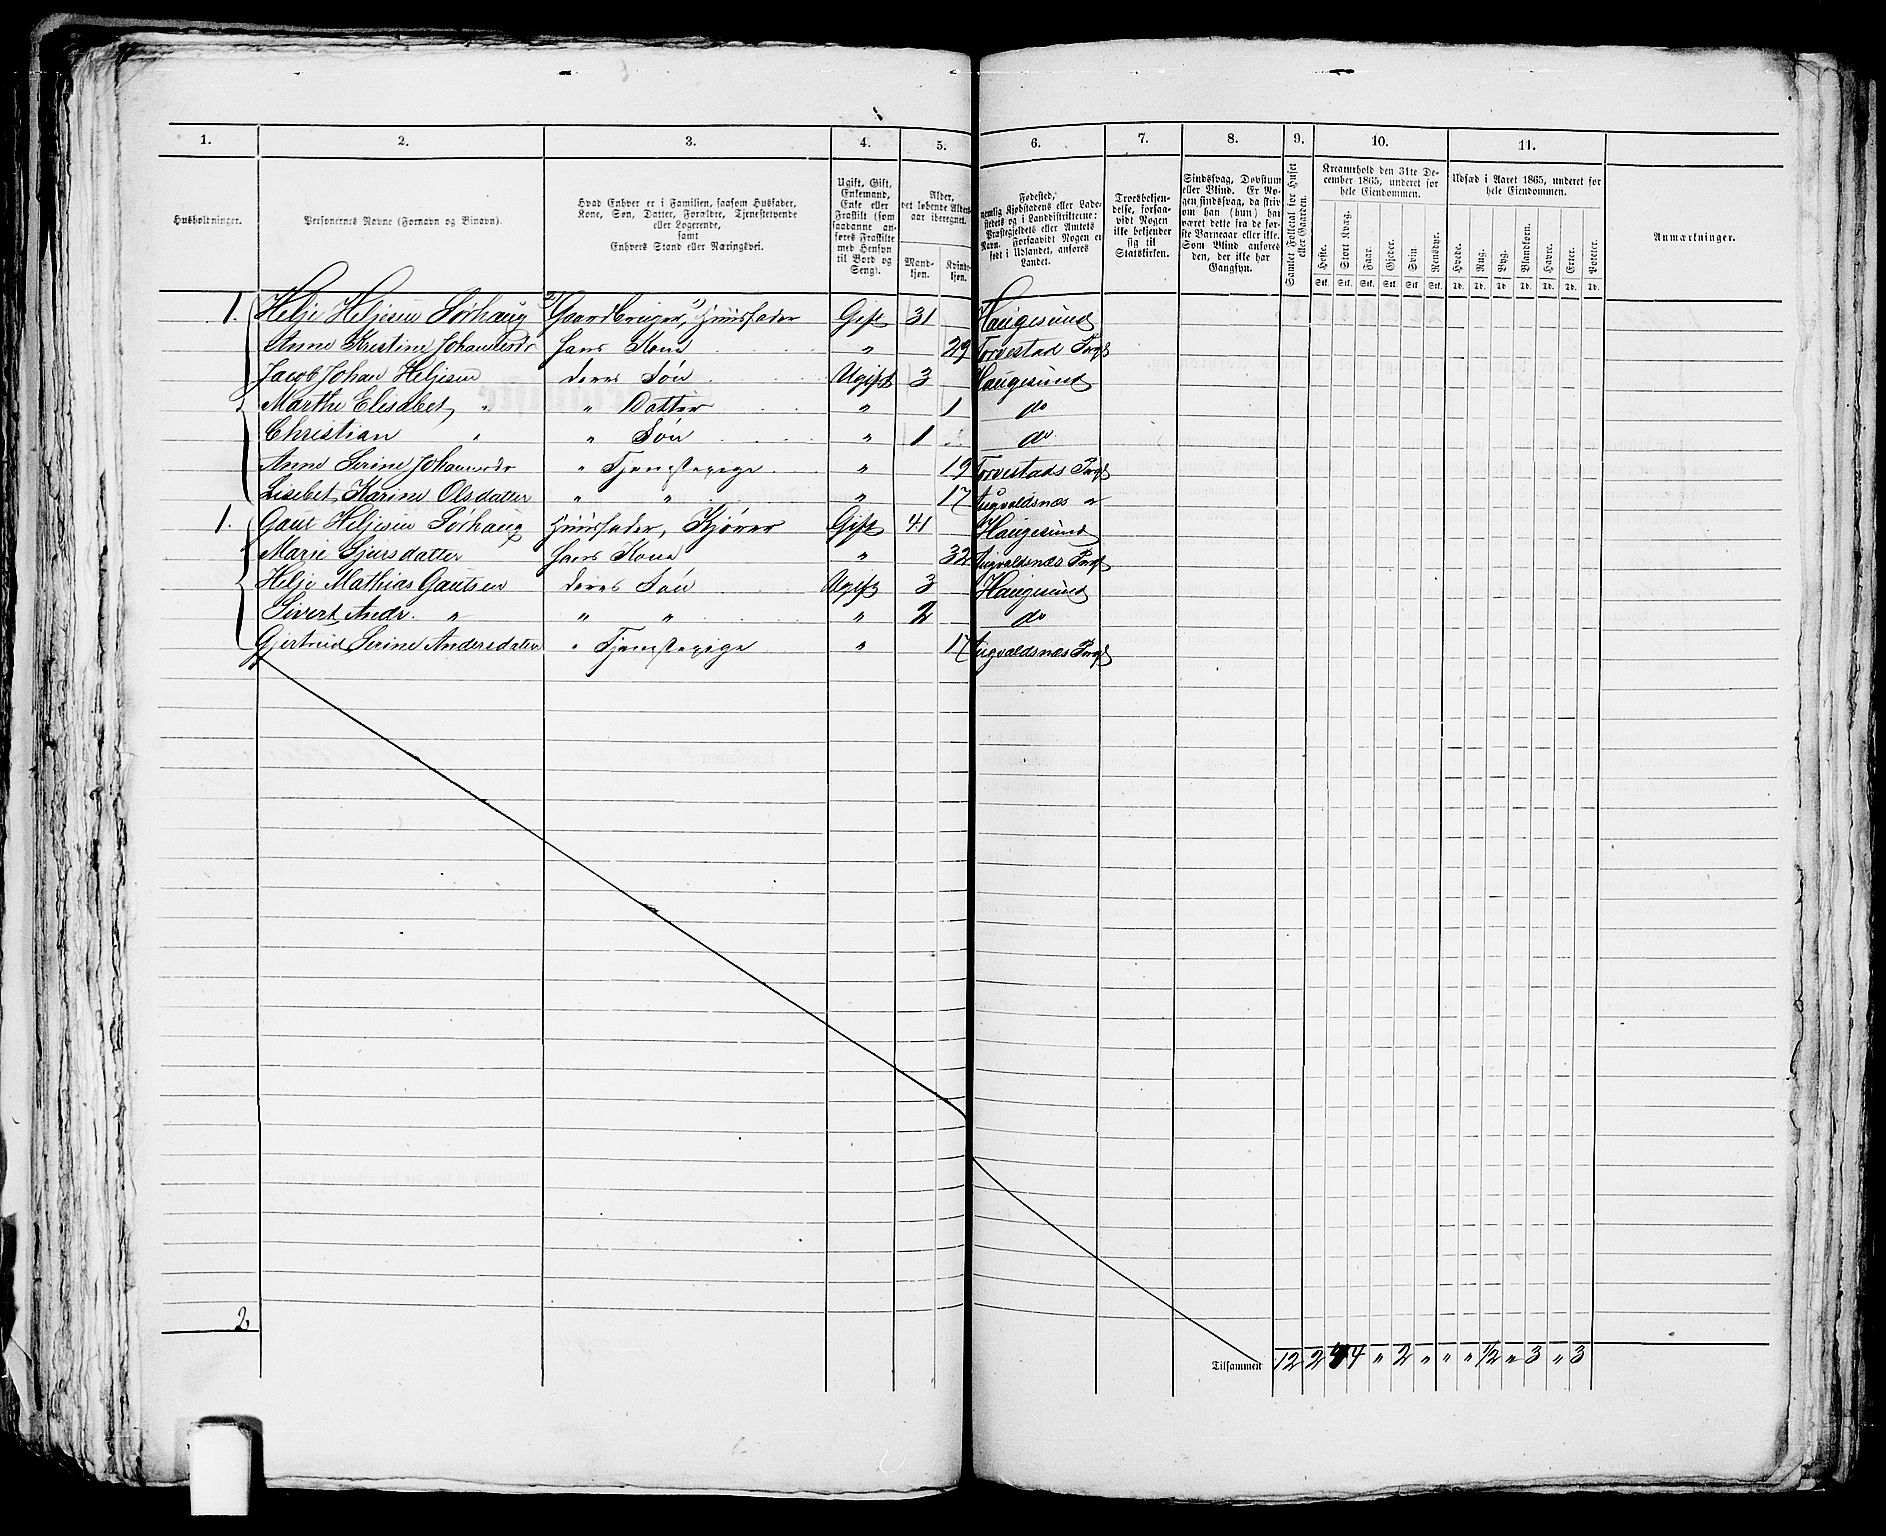 1. 2. 3. 4. 5. 6. 7. 8. 9. 10. 11.
Husholdninger.
Personernes Navne (Fornavn og Binavn).
Hvad Enhver er i Familien, saasom Husfader,
Kone, Søn, Datter, Forældre, Tjenestetyende
eller Logerende,
samt
Enhvers Stand eller Næringsvei.
Ugift, Gift,
Enkemand,
Enke eller
Fraskilt (som
saadanne an-
føres Fraskilte
med Hensyn
til Bord og
Seng).
Alder,
det løbende Alders-
aar iberegnet.
Mand-
kjøn.
Kvinde-
kjøn.
Fødested,
nemlig Kjøbstadens eller Lade-
stedets og i Landdistrikterne:
Præstegjeldets eller Amtets
Navn. Forsaavidt Nogen er
født i Udlandet, anføres
Landet.
Troesbekjen-
delse, forsaa-
vidt Nogen
ikke bekjender
sig til
Statskirken.
Sindssvag, Døvstum
eller Blind. Er No-
gen sindssvag, da skriv
om han (hun) har
været dette fra de før-
ste Barneaar eller ikke.
Som Blind anføres
den, der ikke har
Gangsyn.
Samlet Folketal for Huset
eller Gaarden.
Kreaturhold den 31te De-
cember 1865, underet for
hele Eiendommen.
Heste. Stort Kvæg. Faar. Gjeder. Svin. Rensdyr.
Stk. Stk. Stk. Stk. Stk. Stk.
Udsæd i Aaret 1865, underet for
hele Eiendommen.
Hvede. Rug. Byg. Blandkorn. Havre. Erter. Poteter.
Td. Td. Td. Td. Td. Td. Td.
Anmærkninger.
1. Helje Heljesen Sørhaug Gaardbruger, Huusfader Gift 31 Haugesund
Anne Kristine Johannesdr hans Kone " 29 Torvestad Prgl
Jacob Johan Heljesen deres Søn Ugift 3 Haugesund
Marthe Elisabet " " Datter " 1 do
Christian " " Søn " 1 do
Anne Serine Johannesdr " Tjenestepige " 19 Torvestads Prgl
Lisebet Karine Olsdatter " " " 17 Augvaldsnæs "
1. Gaut Heljesen Sørhaug Huusfader, Kjører Gift 41 Haugesund
Marie Sjursdatter hans Kone " 32 Augvaldsnæs Prgl
Helje Mathias Gautsen deres Søn Ugift 3 Haugesund
Sivert Andr. " " " " 2 do
Gjertrud Serine Andersdatter " Tjenestepige " 17 Augvaldsnæs Prgl
2
Tilsammen 12 2 4 4 " 2 " " " 1/2 " 3 " 3